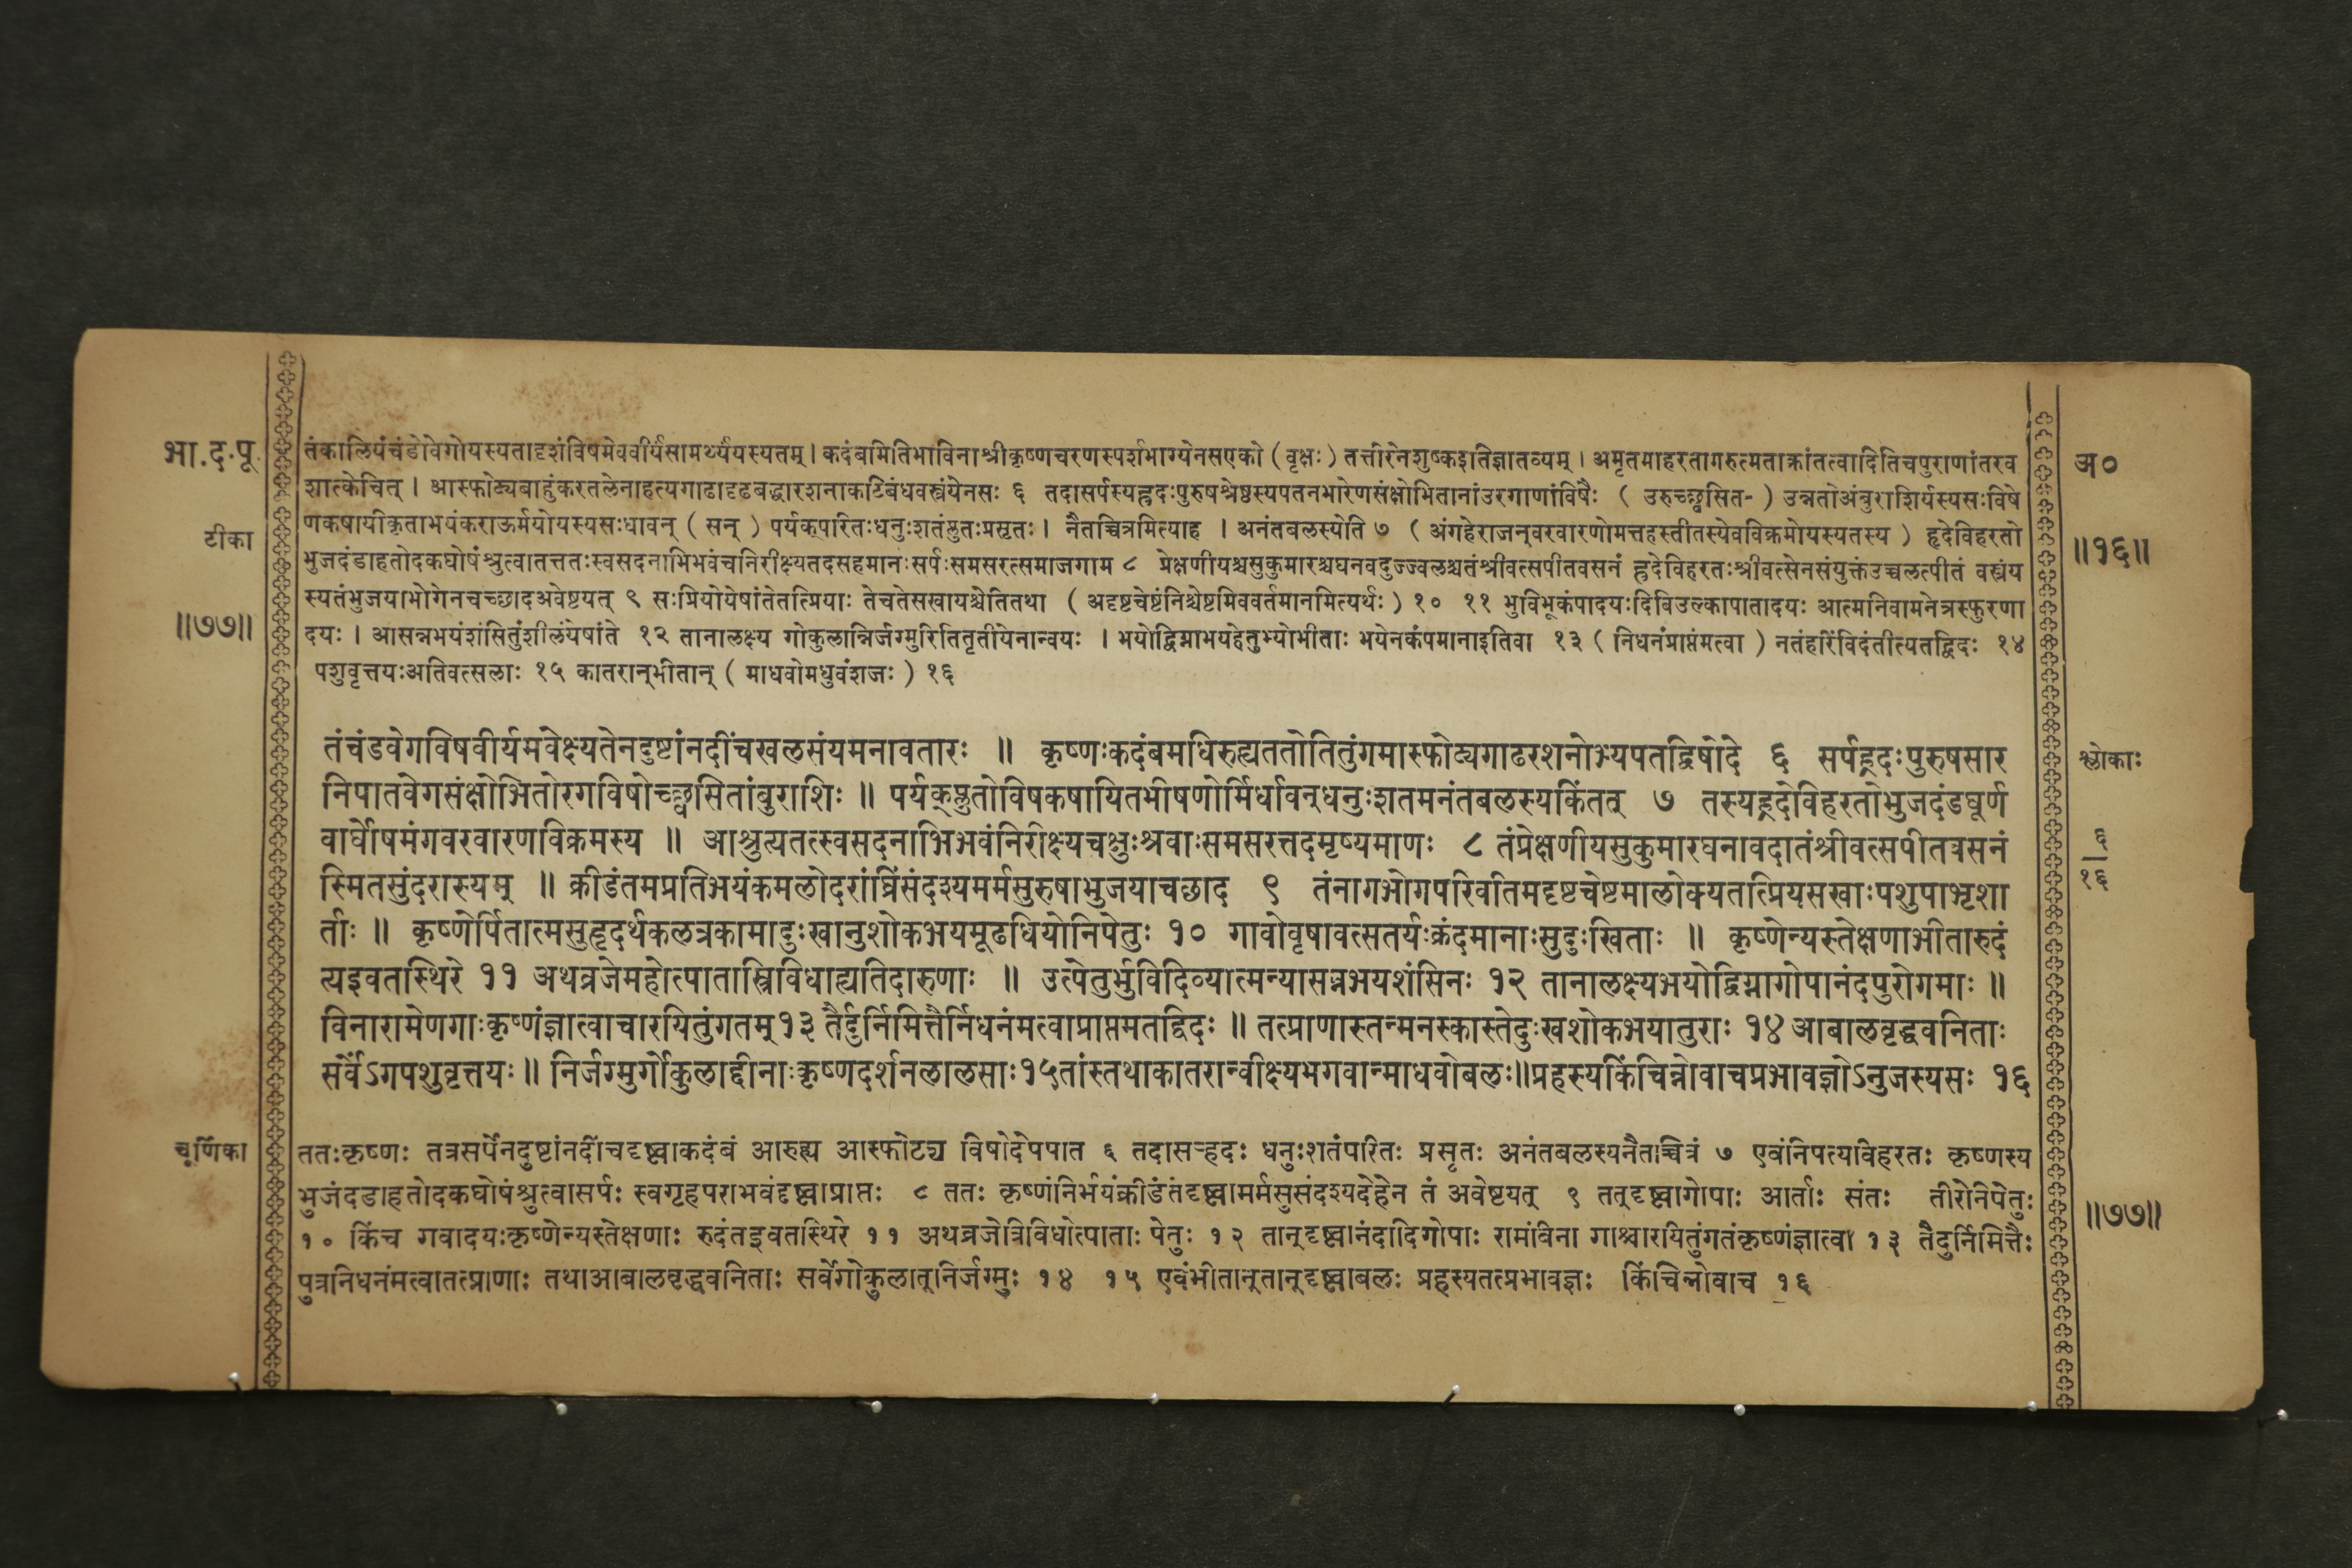 भा.द.पू
तंकालियंचंडोवेगोयस्यतादृशंविषमेववीर्यंसामर्थ्यंयस्यतम् । कदंबमितिभाविनाश्रीकृष्णचरणस्पर्शभाग्येनसएको ( वृक्षः ) तत्तीरेनशुष्कइतिज्ञातव्यम् । अमृतमाहरतागरुत्मताक्रांतत्वादितिचपुराणांतरव
शात्केचित् । आस्फोट्यबाहुंकरतलेनाहत्यगाढादृढबद्धारशनाकटिबंधवस्त्रंयेनसः ६ तदासर्पस्यह्रदःपुरुषश्रेष्ठस्यपतनभारेणसंक्षोभितानांउरगाणांविषैः ( उरुच्छ्वसित- ) उन्नतोअंबुराशिर्यस्यसःविषे
टीका
णकषायीकृताभयंकराऊर्मयोयस्यसःधावन् ( सन् ) पर्यक्परितःधनुःशतंप्लुतःप्रसृतः । नैतच्चित्रमित्याह । अनंतबलस्येति ७ ( अंगहेराजन्वरवारणोमत्तहस्तीतस्येवविक्रमोयस्यतस्य ) ह्रदेविहरतो
भुजदंडाहतोदकघोषंश्रुत्वातत्ततःस्वसदनाभिभवंचनिरीक्ष्यतदसहमानःसर्पःसमसरत्समाजगाम ८ प्रेक्षणीयश्चसुकुमारश्चघनवदुज्ज्वलश्चतंश्रीवत्सपीतवसनं ह्रदेविहरतःश्रीवत्सेनसंयुक्तंउच्चलत्पीतं वस्त्रंय
स्यतंभुजयाभोगेनचच्छादअवेष्टयत् ९ सःप्रियोयेषांतेतत्प्रियाः तेचतेसखायश्चेतितथा ( अदृष्टचेष्टंनिश्चेष्टमिववर्तमानमित्यर्थः ) १० ११ भुविभूकंपादयःदिविउल्कापातादयः आत्मनिवामनेत्रस्फुरणा
॥७७॥
दयः । आसन्नभयंशंसितुंशीलंयेषांते १२ तानालक्ष्य गोकुलान्निर्जग्मुरितितृतीयेनान्वयः । भयोद्विग्नाभयहेतुभ्योभीताः भयेनकंपमानाइतिवा १३ ( निधनंप्राप्तंमत्वा ) नतंहरिंविदंतीत्यतद्विदः १४
पशुवृत्तयःअतिवत्सलाः १५ कातरान्भीतान् ( माधवोमधुवंशजः ) १६
अ०
॥१६॥
तंचंडवेगविषवीर्यमवेक्ष्यतेनदुष्टांनदींचखलसंयमनावतारः ॥ कृष्णःकदंबमधिरुह्यततोतितुंगमास्फोट्यगाढरशनोभ्यपतद्विषोदे ६ सर्पह्रदःपुरुषसार
निपातवेगसंक्षोभितोरगविषोच्छ्वसितांबुराशिः ॥ पर्यक्प्लुतोविषकषायितभीषणोर्मिर्धावन्धनुःशतमनंतबलस्यकिंतत् ७ तस्यह्रदेविहरतोभुजदंडघूर्ण
वार्घोषमंगवरवारणविक्रमस्य ॥ आश्रुत्यतत्स्वसदनाभिभवंनिरीक्ष्यचक्षुःश्रवाःसमसरत्तदमृष्यमाणः ८ तंप्रेक्षणीयसुकुमारघनावदातंश्रीवत्सपीतवसनं
स्मितसुंदरास्यम् ॥ क्रीडंतमप्रतिभयंकमलोदरांघ्रिंसंदश्यमर्मसुरुषाभुजयाचछाद ९ तंनागभोगपरिवीतमदृष्टचेष्टमालोक्यतत्प्रियसखाःपशुपाभृशा
र्ताः ॥ कृष्णेर्पितात्मसुहृदर्थकलत्रकामादुःखानुशोकभयमूढधियोनिपेतुः १० गावोवृषावत्सतर्यःक्रंदमानाःसुदुःखिताः ॥ कृष्णेन्यस्तेक्षणाभीतारुदं
त्यइवतस्थिरे ११ अथव्रजेमहोत्पातास्त्रिविधाह्यतिदारुणाः ॥ उत्पेतुर्भुविदिव्यात्मन्यासन्नभयशंसिनः १२ तानालक्ष्यभयोद्विग्नागोपानंदपुरोगमाः ॥
विनारामेणगाःकृष्णंज्ञात्वाचारयितुंगतम्१३ तैर्दुर्निमित्तैर्निधनंमत्वाप्राप्तमतद्विदः ॥ तत्प्राणास्तन्मनस्कास्तेदुःखशोकभयातुराः १४ आबालवृद्धवनिताः
सर्वेंऽगपशुवृत्तयः ॥ निर्जग्मुर्गोकुलाद्दीनाःकृष्णदर्शनलालसाः१५तांस्तथाकातरान्वीक्ष्यभगवान्माधवोबलः॥प्रहस्यकिंचिन्नोवाचप्रभावज्ञोऽनुजस्यसः १६
श्लोकाः
६
१६
चूर्णिका
ततःकृष्णः तत्रसर्पेनदुष्टांनदींचदृष्ट्वाकदंबं आरुह्य आस्फोट्य विषोदेपपात ६ तदासर्‍हदः धनुःशतंपरितः प्रसृतः अनंतबलस्यनैतच्चित्रं ७ एवंनिपत्यविहरतः कृष्णस्य
भुजंदडाहतोदकघोषंश्रुत्वासर्पः स्वगृहपराभवंदृष्ट्वाप्राप्तः ८ ततः कृष्णंनिर्भयंक्रीडंतंदृष्ट्वामर्मसुसंदश्यदेहेन तं अवेष्टयत् ९ तत्दृष्ट्वागोपाः आर्ताः संतः तीरेनिपेतुः
१० किंच गवादयःकृष्णेन्यस्तेक्षणाः रुदंतइवतस्थिरे ११ अथव्रजेत्रिविधोत्पाताः पेतुः १२ तान्दृष्ट्वानंदादिगोपाः रामंविना गाश्चारयितुंगतंकृष्णंज्ञात्वा १३ तैदुर्निमित्तैः
पुत्रनिधनंमत्वातत्प्राणाः तथाआबालवृद्धवनिताः सर्वेगोकुलात्निर्जग्मुः १४ १५ एवंभीतान्तान्दृष्ट्वाबलः प्रहस्यतत्प्रभावज्ञः किंचिन्नोवाच १६
॥७७॥